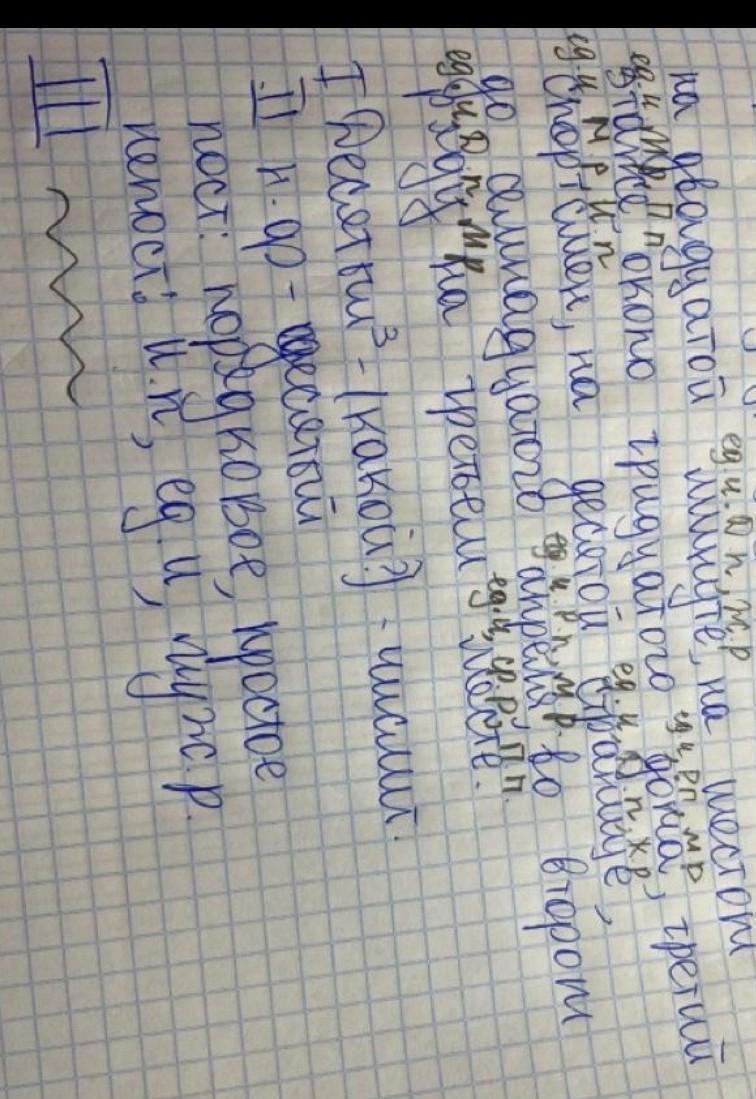 ед.ч. Д.п., м.р
на двадцатой минуте, на шестом
ед.ч. М.р, П.п ед.ч, Р.п м.р
этаже около тридцатого дома, третий
ед.ч М.р, И.п ед.ч, Д.п, ж.р
спортсмен, на десятой странице,
ед.ч. Р.п, м.р.
до семнадцатого апреля во втором
ед.ч, Д.п, м.р ед.ч, ср.р, П.п.
ряду на третьем месте.
I Десятый³ - (какой?) - числит.
II н.ф - десятый
пост: порядковое, простое
непост: И.п, ед.ч, муж.р.
III